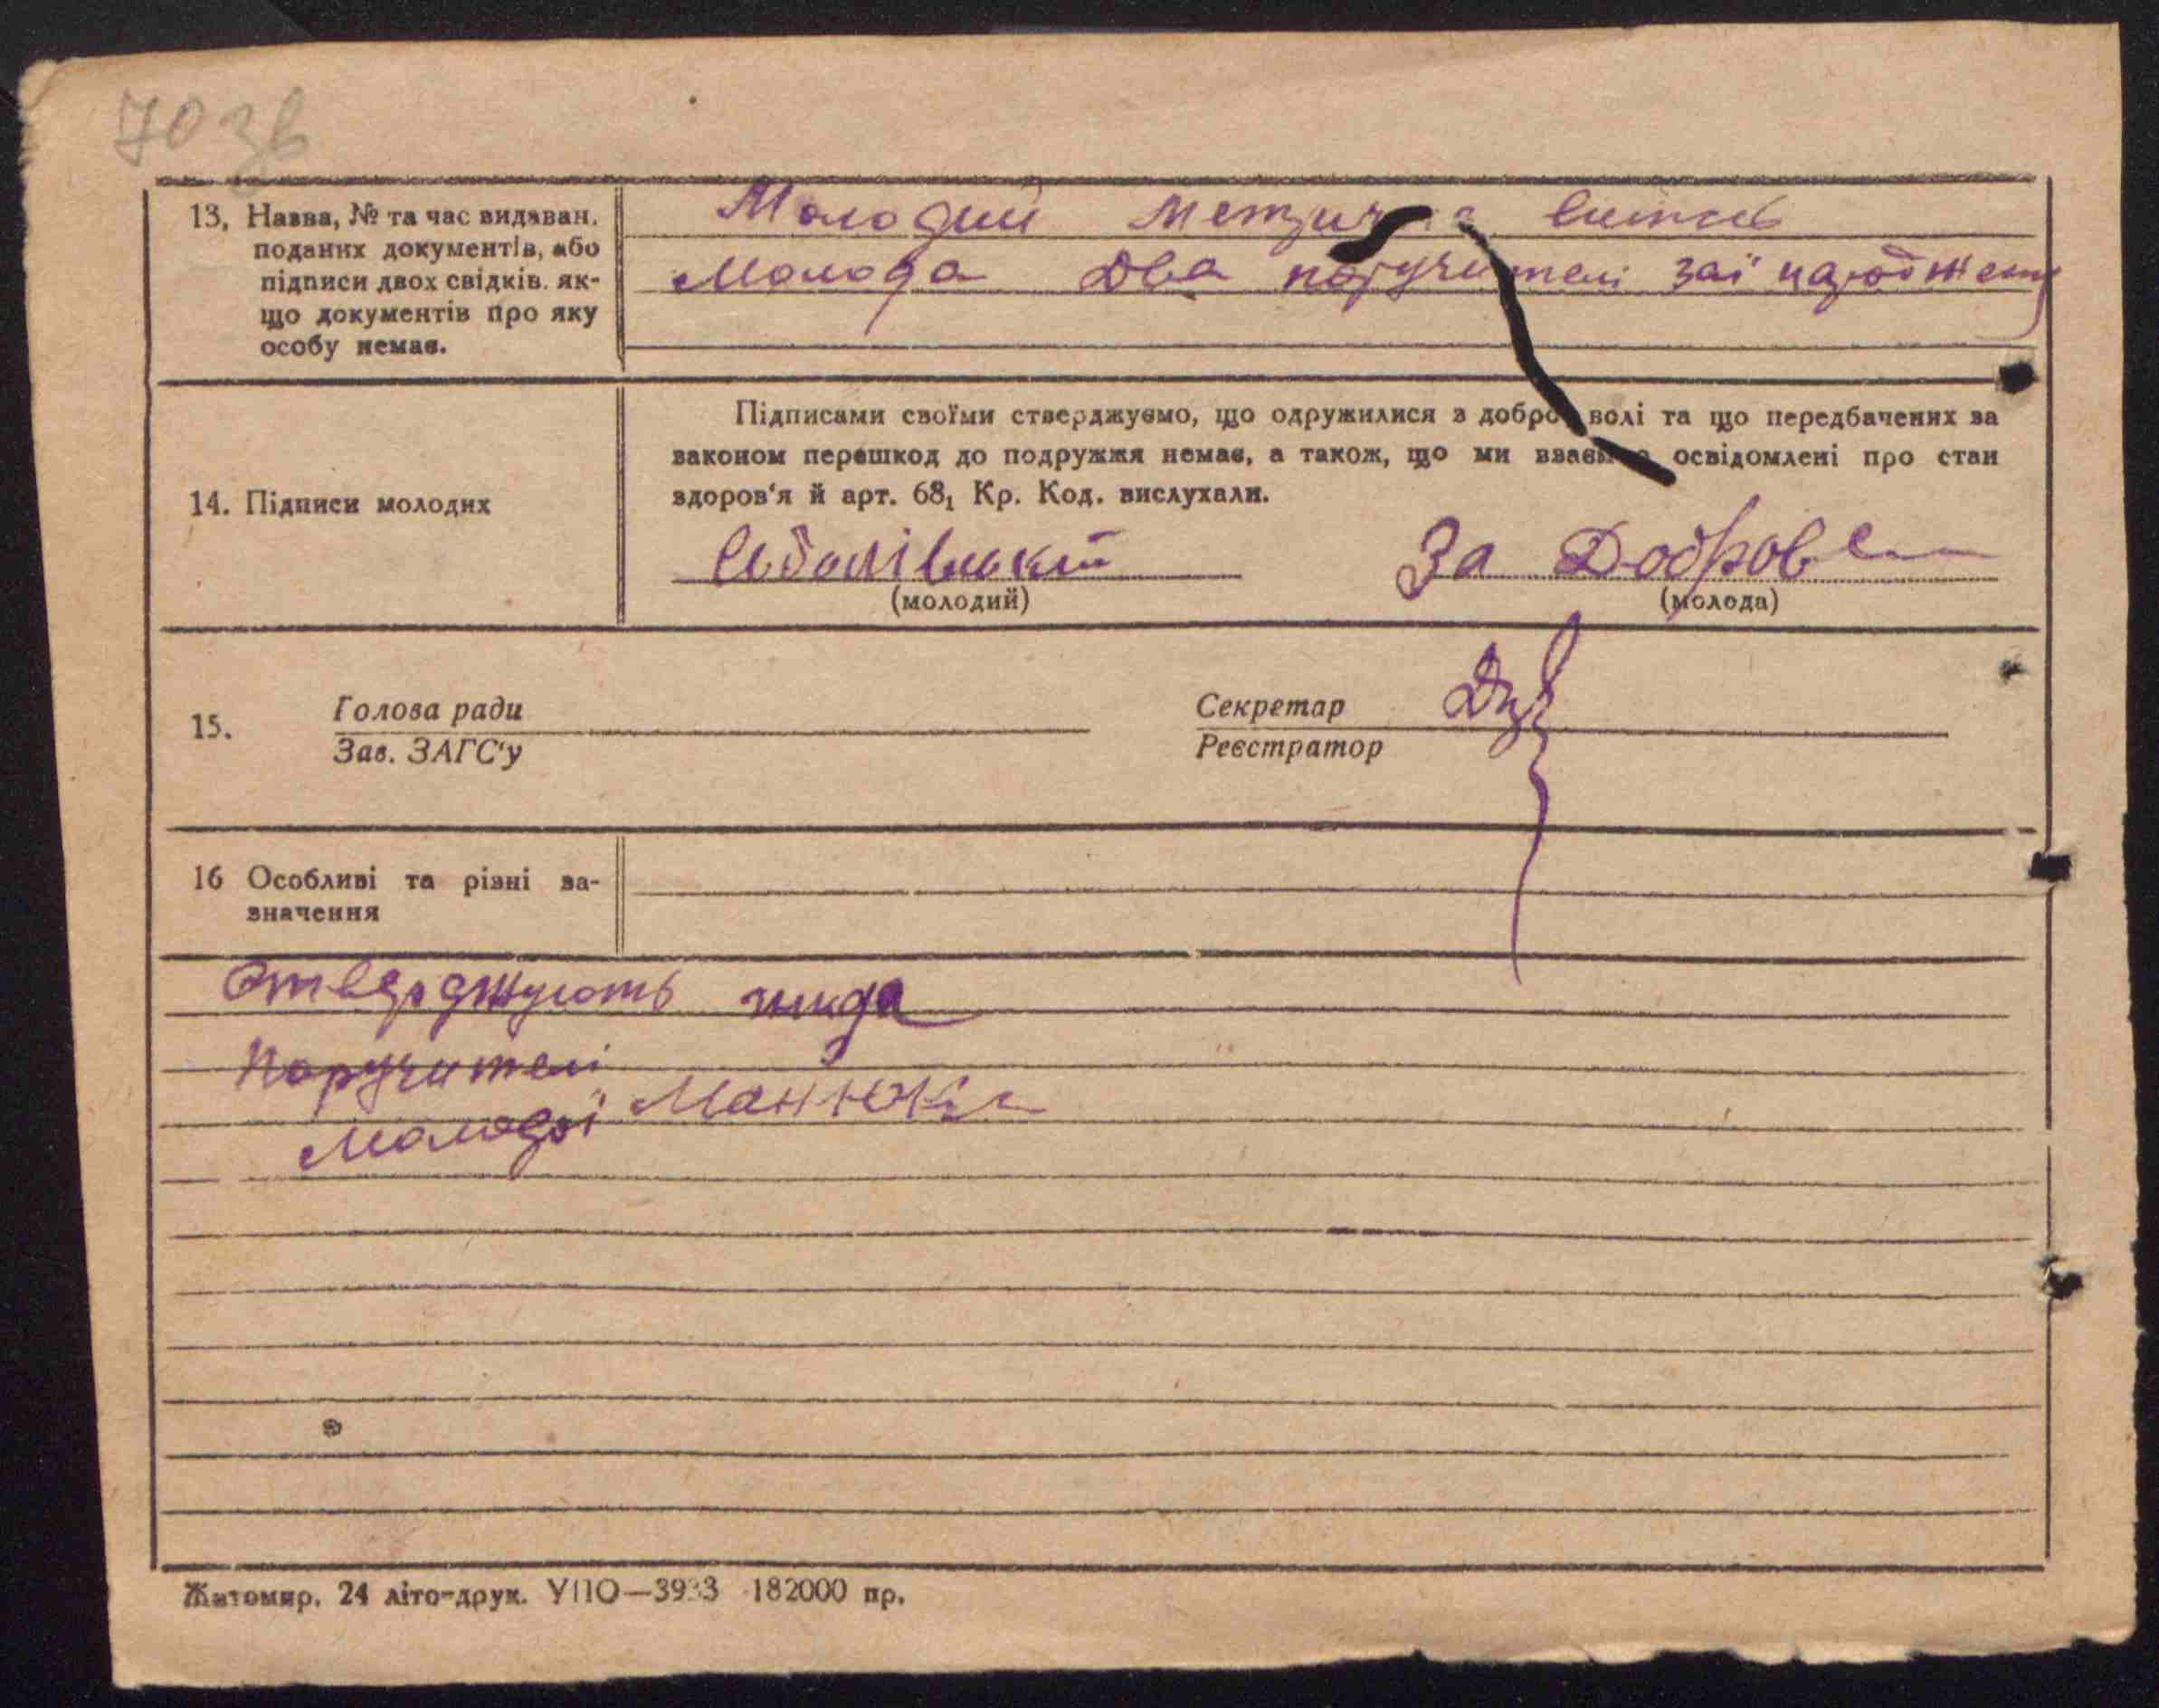 70 зв
13, Назва, № та час видаван.
поданих документів, або
підписи двох свідків. як-
що документів про яку
особу немає.
Молодий метрична витяг
Молода Два поручителі за її народження
14. Підписи молодих
Підписами своїми стверджуємо, що одружилися з доброї волі та що передбачених за
законом перешкод до подружжя немає, а також, що ми взаємно освідомлені про стан
здоров'я й арт. 68₁ Кр. Код. вислухали.
За
(молодий) (молода)
15. Голова ради
Зав. ЗАГС'у
Секретар
Реєстратор
16 Особливі та різні за-
значення
Стверджують
Поручителі
молодої
Житомир, 24 літо-друк. УПО—3933 182000 пр.